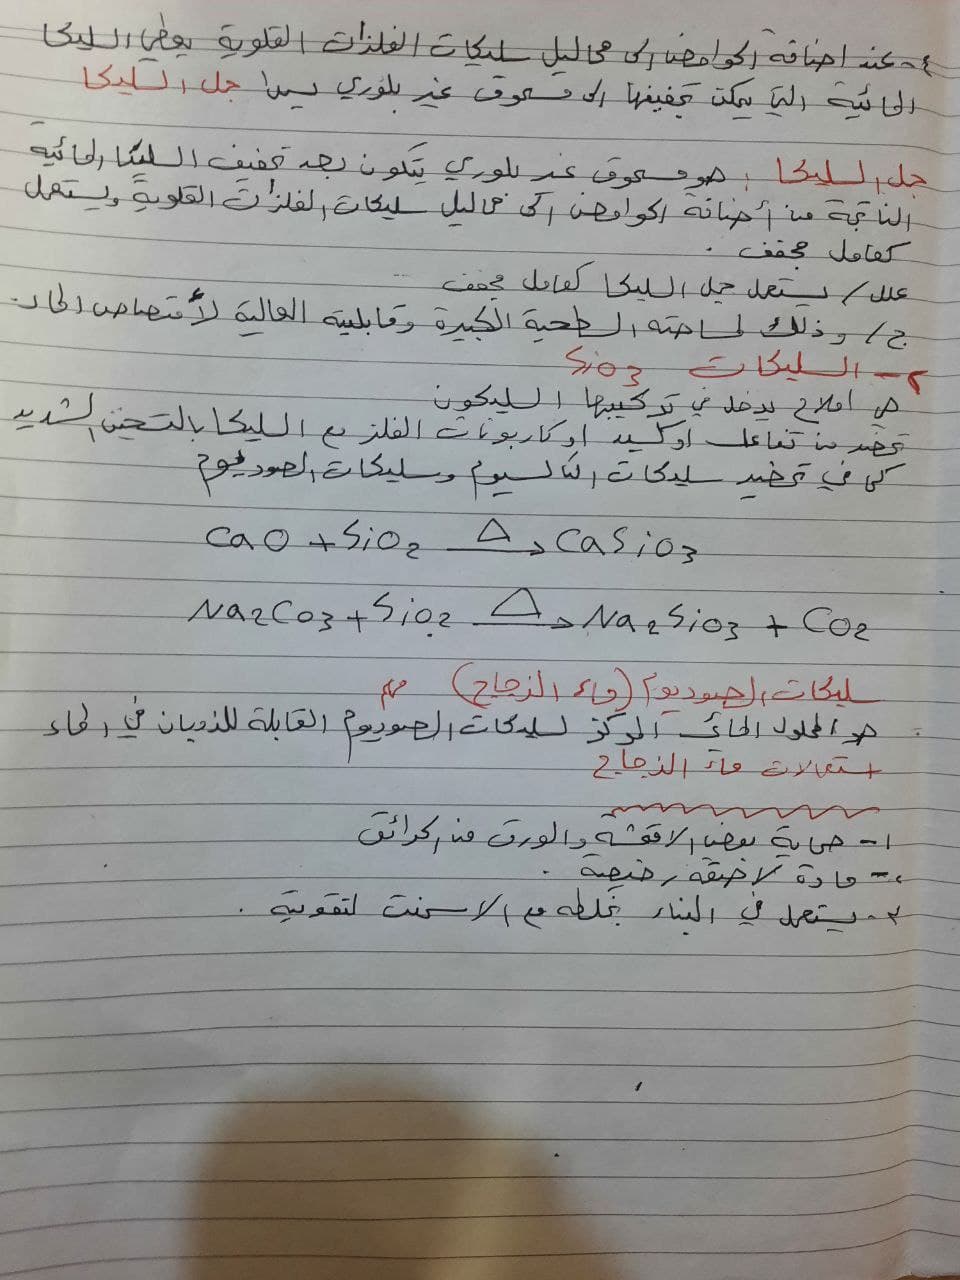 ٤- عند اضافة الحوامض الى محاليل سليكات الفلزات القلوية يعطي السليكا
المائية التي يمكن تجفيفها الى مسحوق غير بلوري يسمى جل السليكا
جل السليكا : هو مسحوق غير بلوري يتكون بعد تجفيف السليكا المائية
الناتجة من أضافة الحوامض الى محاليل سليكات الفلزات القلوية ويستعمل
كعامل مجفف .
علل / يستعمل جل السليكا كعامل مجفف
ج / وذلك لمساحته السطحية الكبيرة وقابليته العالية لأمتصاص الماء .
٢- السليكات SiO3
هي املاح يدخل في تركيبها السليكون
تحضر من تفاعل اوكسيد او كاربونات الفلز مع السليكا بالتسخين الشديد
كما في تحضير سليكات الكالسيوم وسليكات الصوديوم
CaO + SiO2 —Δ→ CaSiO3
Na2CO3 + SiO2 —Δ→ Na2SiO3 + CO2
سليكات الصوديوم (ماء الزجاج) مهم
هو المحلول المائي المركز لسليكات الصوديوم القابلة للذوبان في الماء
استعمالات ماء الزجاج
١- حماية بعض الاقمشة والورق من الحرائق
٢- مادة لاصقة رخيصة .
٣- يستعمل في البناء بخلطه مع الاسمنت لتقويته .